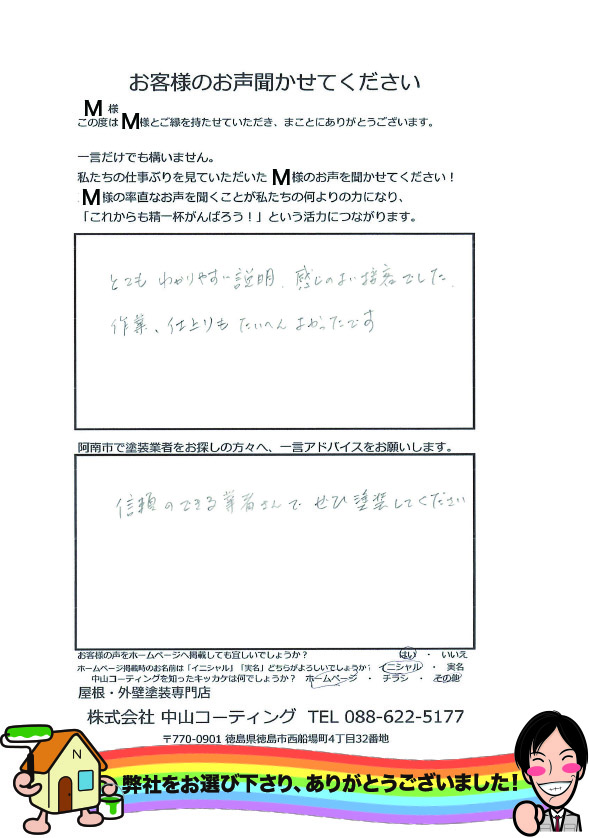 お客様のお声聞かせてください
M 様
この度は M様とご縁を持たせていただき、まことにありがとうございます。
一言だけでも構いません。
私たちの仕事ぶりを見ていただいた M様のお声を聞かせてください！
M様の率直なお声を聞くことが私たちの何よりの力になり、
「これからも精一杯がんばろう！」という活力につながります。
とてもわかりやすい説明、感じのよい接客でした、
作業、仕上りもたいへんよかったです
阿南市で塗装業者をお探しの方々へ、一言アドバイスをお願いします。
信頼のできる業者さんで ぜひ塗装してください
お客様の声をホームページへ掲載しても宜しいでしょうか？ はい ・ いいえ
ホームページ掲載時のお名前は「イニシャル」「実名」どちらがよろしいでしょうか？ イニシャル ・ 実名
中山コーティングを知ったキッカケは何でしょうか？ ホームページ ・ チラシ ・ その他
屋根・外壁塗装専門店
株式会社 中山コーティング TEL 088-622-5177
〒770-0901 徳島県徳島市西船場町4丁目32番地
N
弊社をお選び下さり、ありがとうございました！